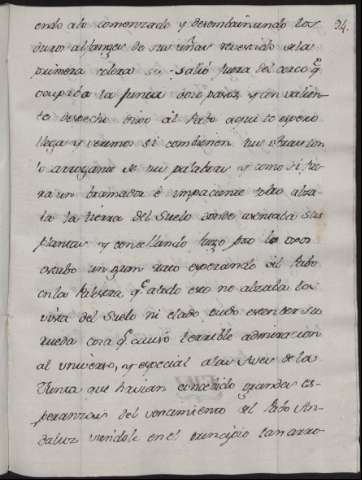 94.
endo alo comenzado y desembainando los
duros alfanges de sus uñas revestido de la
primera colera se salió fuera del cerco q.e
ocupaba la Junta doze pasos, y con valien
te despecho dixo al Pabo aqui te espero
llega y veremos si combienen tus obras con
lo arrogante de tus palabras y como si fue
ra un bramador è impaciente toro alza
ba la tierra del suelo donde asentaba sus
plantas y con
estubo un gran rato esperando al Pabo
en la Palestra q.e atodo esto no alzaba los
vista del Suelo ni elado pudo estender su
rueda cosa q.e causò terrible admiracion
al universo, y especial alas Aves de la
Junta que havian concebido grandes es-
peranzas del vencimiento del Pabo An-
daluz viendole en el principio tan arro-